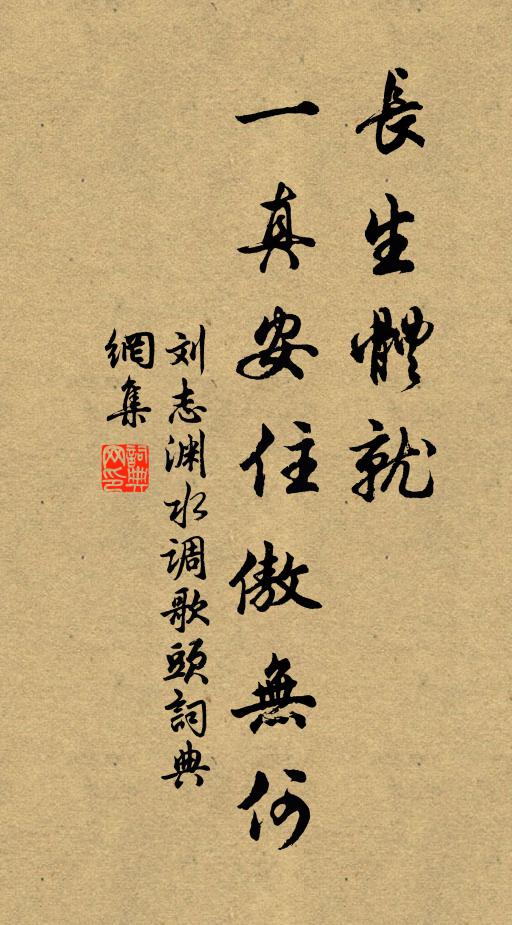 長生體就
一真安住傲無何
刘志渊水调歌頭詞典
網集
詞典
网印